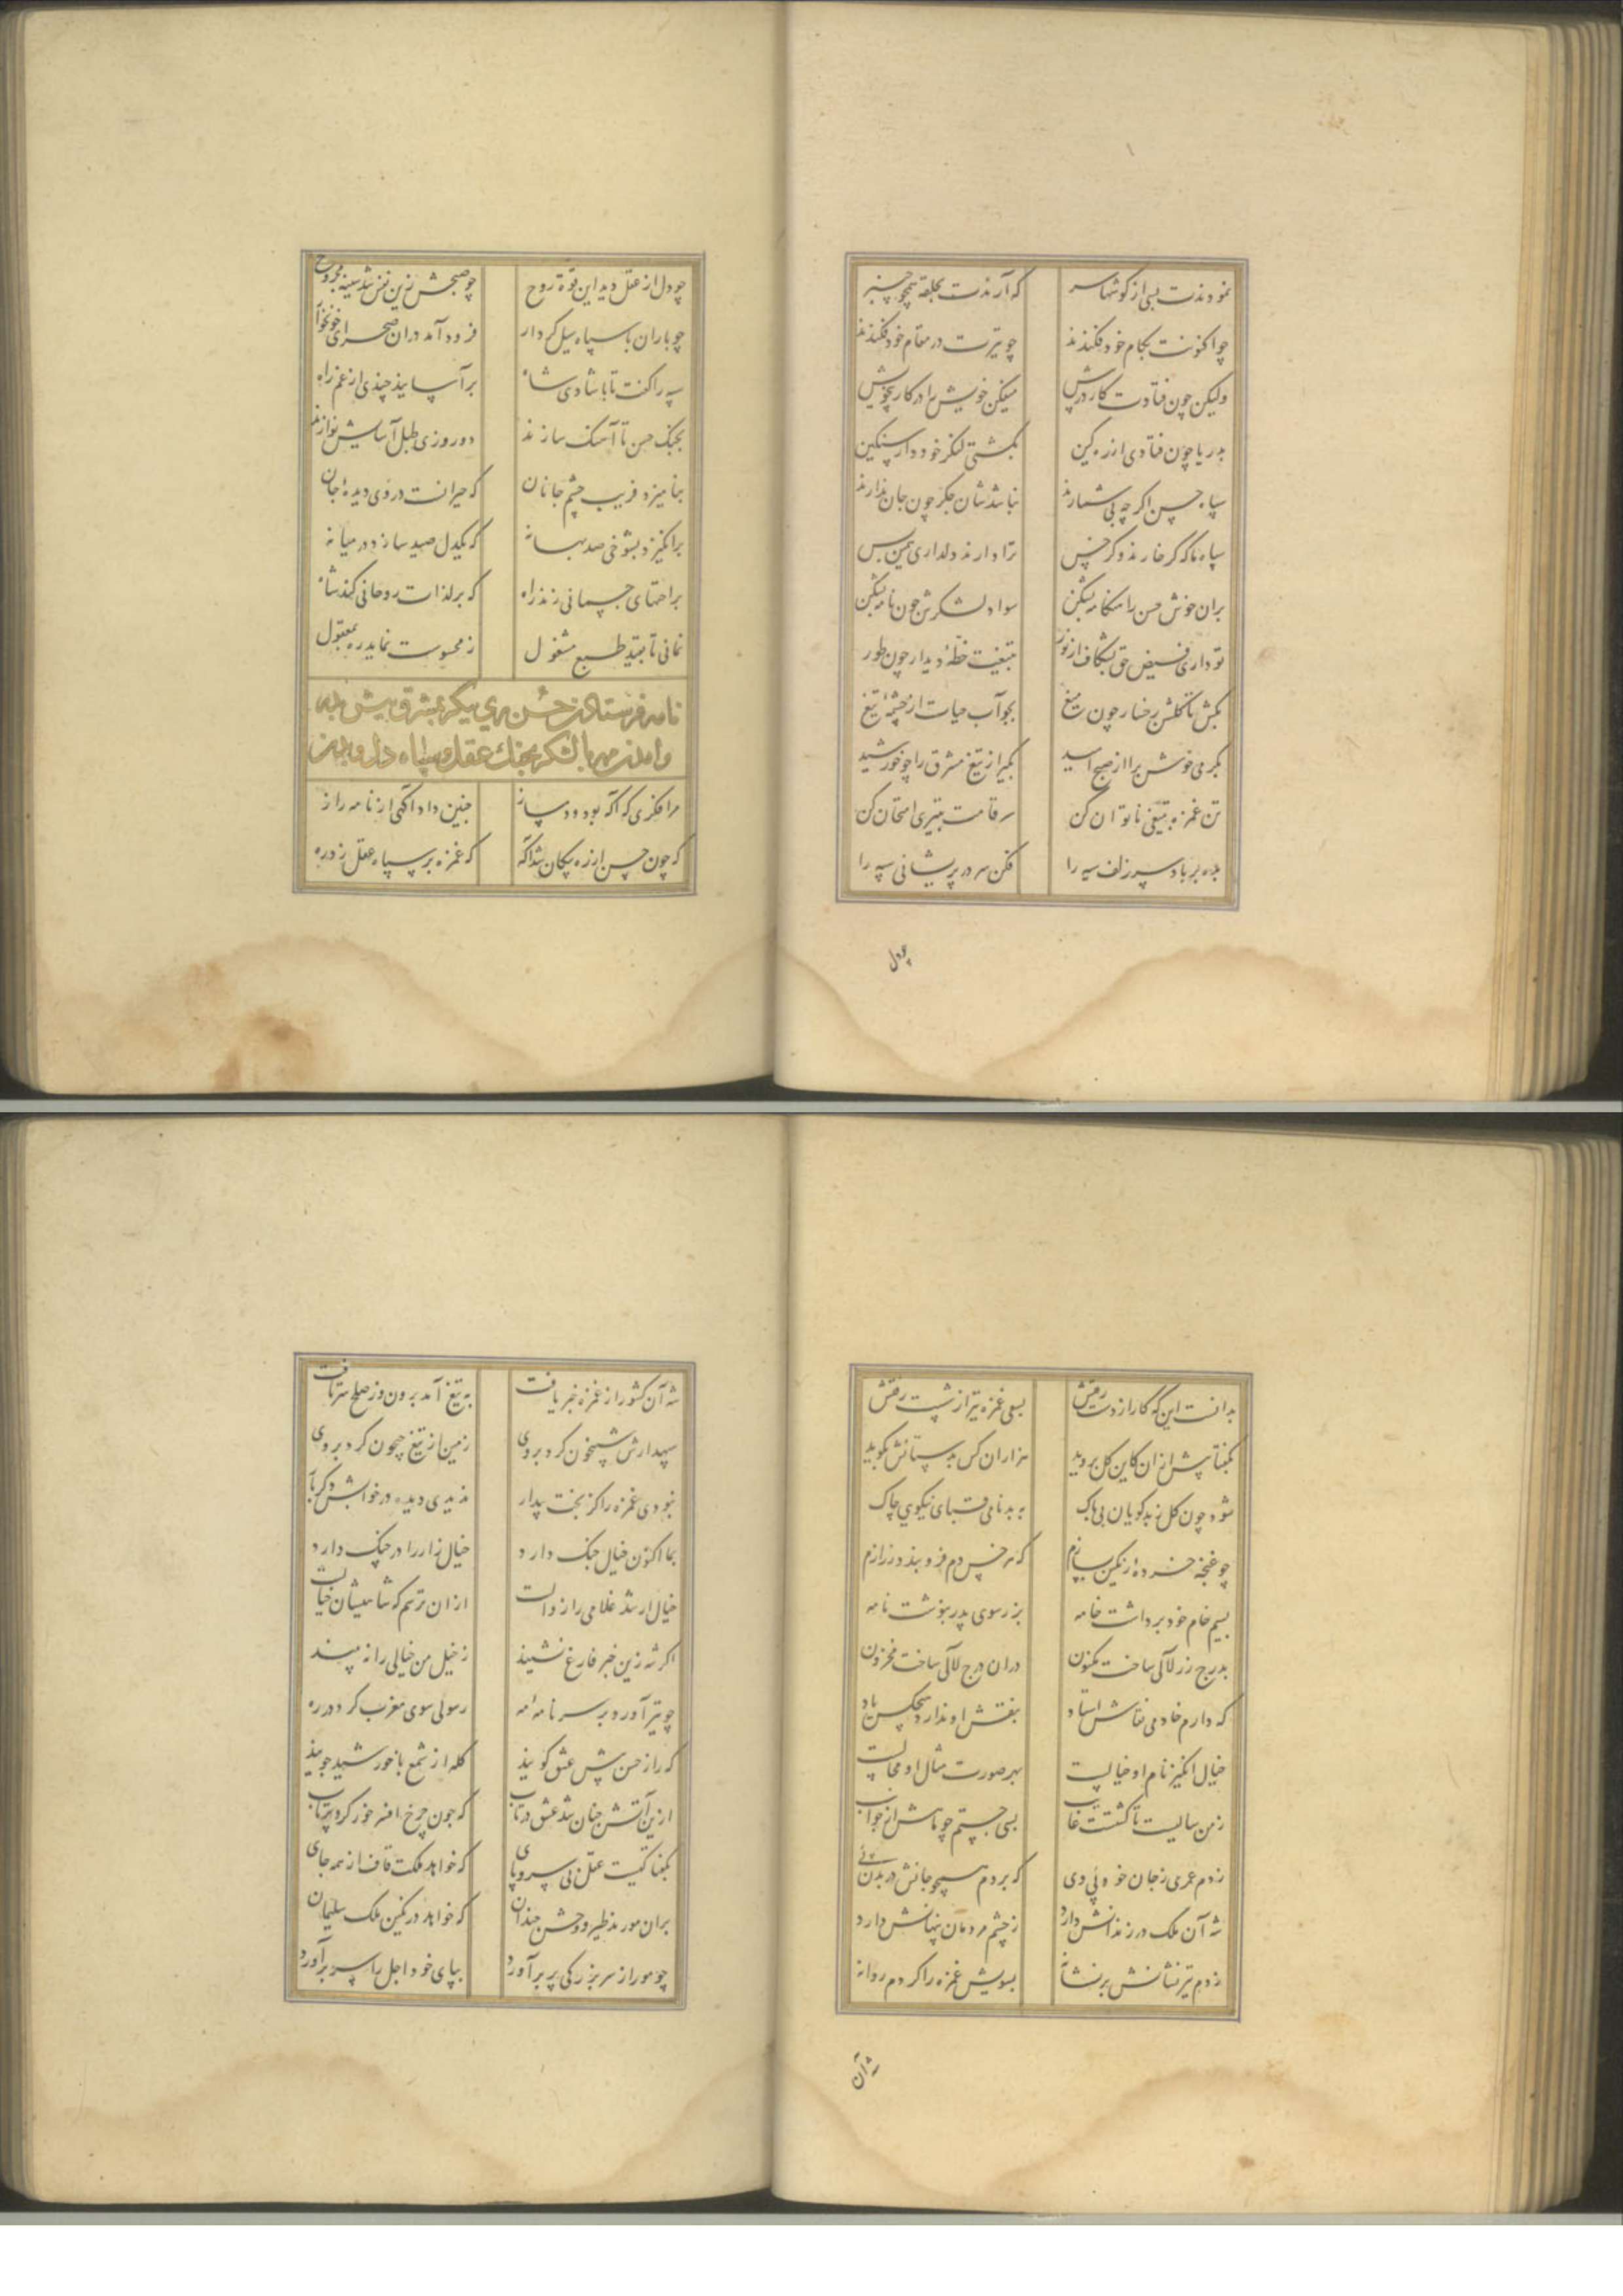 نمودندت بسی از کوشها سر که آرندت بحلقه همچو چنبر
چو اکنونت بکام خود فکندند چو تیرت در مقام خود فکندند
ولیکن چون فتادت کار در پیش میفکن خویش را در کار بخویش
بدریا چون فتادی از ره کین بکشتی لنکر خود دار سنکین
سپاه حسن اکر چه بی شمارند نباشدشان جکر چون جان ندارند
سپاه ما که کر خارند و کر خس ترا دارند دلداری همین بس
بران خوش حسن را هنکامه بشکن سواد لشکرش چون نامه بشکن
تو داری فیض حق بشکاف از نور بتیغت خطهٔ دیدار چون طور
بکش تا کلشن رخسار چون میغ بجو آب حیات از چشمهٔ تیغ
بکرمی خوش برا از صبح امید بکیر از تیغ مشرق را چو خورشید
تن غمزه بتیغی ناتوان کن سر قامت بتیری امتحان کن
بده بر باد سر زلف سیه را فکن سر در پریشانی سپه را
چو دل
چو دل از عقل دید این قوة روح چو صبحش زین نفس شد سینه مجروح
چو باران با سپاه سیل کردار فرود آمد دران صحرای خونخوار
سپه را کفت تا با شادی شاه برآسایند چندی از غم راه
بجنک حسن تا آهنک سازند دو روزی طبل آسایش نوازند
بیامیزد فریب چشم جانان که حیرانست در وی دیدهٔ جان
برانکیزد بشوخی صد بهانه که یکدل صید سازد در میانه
براحتهای جسمانی زند راه که بر لذات روحانی کند شاه
نمانی تا بقید طبع مشغول ز محسوست نماید ره بمعقول
نامه فرستادن حسن پری پیکر بمشرق پیش پدر
و آمدن مهر با لشکر بجنک عقل و سپاه دل و بدن
مرا فکری که آکه بود و دمساز چنین داد آکهی از نامه راز
که چون حسن از ره پیکان شد آکه که غمزه بر سپاه عقل زد ره
بدانست این که کار از دست رفتش بسعی غمزه تیر از شست رفتش
بکفتا پیش ازان کاین کل بروید هزاران کس بدستانش بکوید
شود چون کل ز بدکویان بی باک ببدنامی قبای نیکویی چاک
چو غنچه خردهٔ رنکین بسازم که هر خس دم فرو بندد ز رازم
بسیم خام خود برداشت خامه بزر سوی پدر بنوشت نامه
بدرج زر لآلی ساخت مکنون دران درج لآلی ساخت مخزون
که دارم خادمی نقاش استاد بنقش او ندارد هیچکس یاد
خیال انکیز نام او خیالست بهر صورت مثال او محالست
ز من سالیست تا کشتست غایب بسی جستم چو تابش از جوانب
زدم عمری ز جان خود پی وی که بردم همچو جانش در بدن پی
شه آن ملک در زندانش دارد ز چشم مردمان پنهانش دارد
زدم تیر نشانش بر نشانه بسویش غمزه را کردم روانه
شه آن
شه آن کشور از غمزه خبر یافت به تیغ آمد برون وز صلح سر تافت
سپهدارش شبیخون کرد بر وی زمین از تیغ جیحون کرد بر وی
نبودی غمزه را کر بخت بیدار ندیدی دیده در خوابش دکر بار
بما اکنون خیال جنک دارد خیال زار را در چنک دارد
خیال ار شد غلامی را زوالست ازان ترسم که شاهیشان خیالست
اکر شه زین خبر فارغ نشیند ز خیل من خیالی را نه بیند
چو تیر آورد بر سر نامه مه رسولی سوی مغرب کرد در ره
که راز حسن پیش عشق کویند کله از شمع با خورشید جویند
ازین آتش چنان شد عشق در تاب که چون چرخ افسر خور کرد پرتاب
بکفتا کیست عقل بی سر و پای که خواهد ملکت قاف از همه جای
بران مور ند طیر و وحش خندان که خواهد در نکین ملک سلیمان
چو مور از سر بزرکی پر برآورد بپای خود اجل را سر برآورد